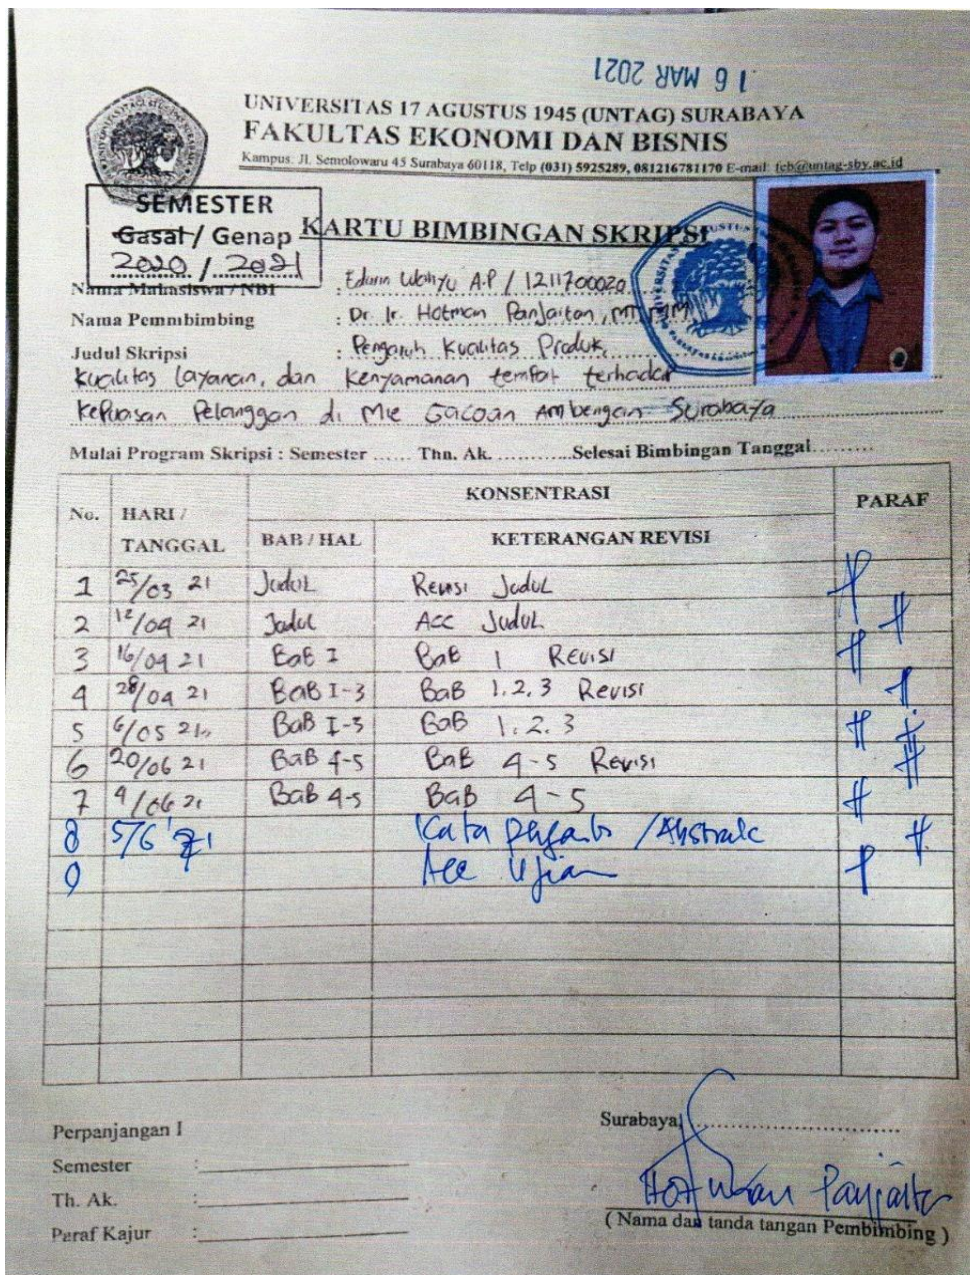 16 MAR 2021
UNIVERSITAS 17 AGUSTUS 1945 (UNTAG) SURABAYA
FAKULTAS EKONOMI DAN BISNIS
Kampus: Jl. Semolowaru 45 Surabaya 60118, Telp (031) 5925289, 081216781170 E-mail: feb@untag-sby.ac.id
SEMESTER
Gasal / Genap
2020 / 2021
KARTU BIMBINGAN SKRIPSI
Nama Mahasiswa / NBI : Wahyu A.P / 1211700020
Nama Pemnbimbing : Dr. Ir. Hotman Panjaitan, MM
Judul Skripsi : Pengaruh Kualitas Produk,
Kualitas layanan, dan Kenyamanan tempat terhadap
Kepuasan Pelanggan di Mie Gacoan Ambengan Surabaya
Mulai Program Skripsi : Semester ...... Thn. Ak. ............Selesai Bimbingan Tanggal.........
No. HARI / TANGGAL KONSENTRASI PARAF
BAB / HAL KETERANGAN REVISI
1 25/03 21 Judul Revisi Judul
2 12/04 21 Judul Acc Judul
3 16/04 21 BaB I BaB 1 Revisi
4 28/04 21 BaB I-3 BaB 1.2.3 Revisi
5 6/05 21 BaB I-3 BaB 1.2.3
6 20/06 21 BaB 4-5 BaB 4-5 Revisi
7 4/06 21 BaB 4-5 BaB 4-5
8 5/6 '21 Kata Pengantar / Abstrak
9 Acc Ujian
Perpanjangan I
Semester :
Th. Ak. :
Paraf Kajur :
Surabaya, ..............................
Hotman Panjaitan
( Nama dan tanda tangan Pembimbing )